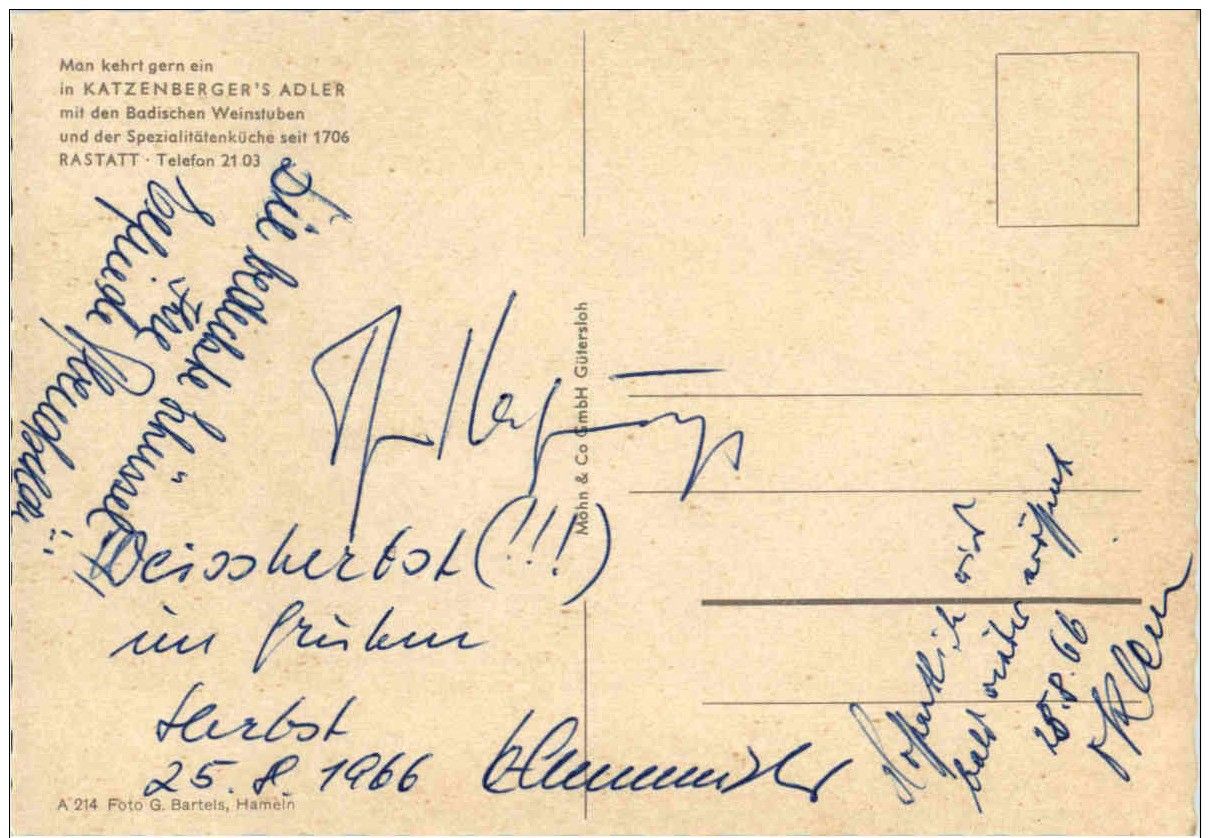 Man kehrt gern ein
in KATZENBERGER'S ADLER
mit den Badischen Weinstuben
und der Spezialitätenküche seit 1706
RASTATT · Telefon 21 03
Die
Ihre
Weissherbst (!!!)
im frühen
Herbst
25.8.1966
Möhn & Co GmbH Gütersloh
Hoffentlich wird
bald wieder eröffnet
25.8.66
A 214 Foto G. Bartels, Hameln